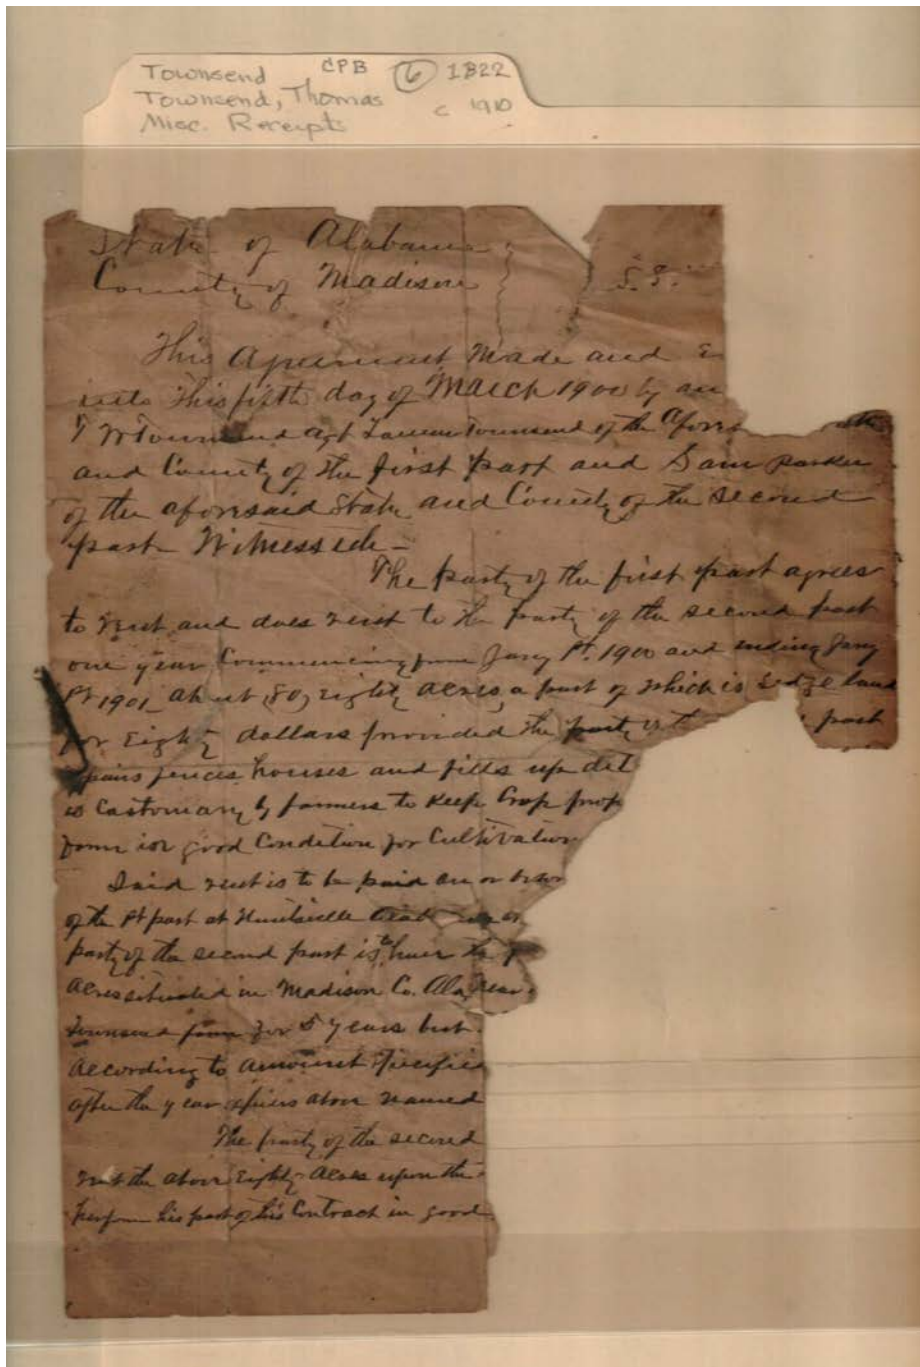 Townsend CPB 6 1822
Townsend, Thomas c 1910
Misc. Receipts
State of Alabama
County of Madison S.S.
This Agreement Made and
into This fifth day of March 1900 by an
T W Townsend agt Townsend of the afore
and County of the first part and Sam Parker
of the aforesaid State and County of the second
part Witnesseth –
The party of the first part agrees
to rent and does rent to the party of the second part
one year Commencing from Jany 1st. 1900 and ending Jany
1st 1901 about 80, eighty acres, a part of which is sedge land
for Eighty dollars provided the party of the part
repairs fences houses and fills up dit
is Castomary by farmers to Keep Crop prop
farm in good Condition for Cultivation
Said rent is to be paid on or
of the 1st part at Huntsville
party of the second part is to have the
Acres situated in Madison Co. Ala, near
Townsend farm for 5 years but
According to amount specified
after the year expires above named
The party of the second
rent the above Eighty Acres upon the
perform his part of this Contract in good